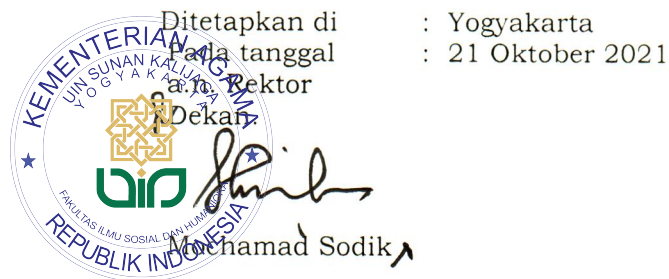 Ditetapkan di : Yogyakarta
Pada tanggal : 21 Oktober 2021
a.n. Rektor
Dekan.
KEMENTERIAN AGAMA
UIN SUNAN KALIJAGA
YOGYAKARTA
uin
FAKULTAS ILMU SOSIAL DAN HUMANIORA
REPUBLIK INDONESIA
Mochamad Sodik